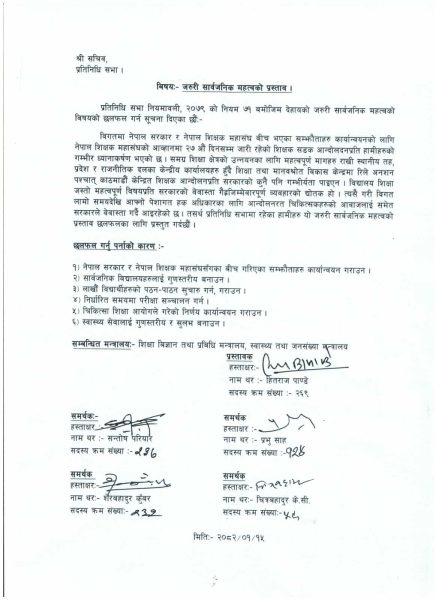 श्री सचिव,
प्रतिनिधि सभा ।
विषय:- जरुरी सार्वजनिक महत्वको प्रस्ताव ।
प्रतिनिधि सभा नियमावली, २०७९ को नियम ७१ बमोजिम देहायको जरुरी सार्वजनिक महत्वको
विषयको छलफल गर्न सूचना दिएका छौं:-
विगतमा नेपाल सरकार र नेपाल शिक्षक महासंघ बीच भएका सम्झौताहरु कार्यान्वयनको लागि
नेपाल शिक्षक महासंघको आव्हानमा २७ औं दिनसम्म जारी रहेको शिक्षक सडक आन्दोलनप्रति हामीहरुको
गम्भीर ध्यानाकर्षण भएको छ। समग्र शिक्षा क्षेत्रको उन्नयनका लागि महत्वपूर्ण मागहरु राखी स्थानीय तह,
प्रदेश र राजनीतिक दलका केन्द्रीय कार्यालयहरु हुँदै शिक्षा तथा मानवश्रोत विकास केन्द्रमा रिले अनशन
पश्चात् काठमाडौं केन्द्रित शिक्षक आन्दोलनप्रति सरकारको कुनै पनि गम्भीर्यता पाइएन । विद्यालय शिक्षा
जस्तो महत्वपूर्ण विषयप्रति सरकारको बेवास्ता गैह्रजिम्मेबारपूर्ण व्यवहारको द्योतक हो । त्यसै गरी विगत
लामो समयदेखि आफ्नो पेशागत हक अधिकारका लागि आन्दोलनरत चिकित्सकहरुको आवाजलाई समेत
सरकारले बेवास्ता गर्दै आइरहेको छ। तसर्थ प्रतिनिधि सभामा रहेका हामीहरु यो जरुरी सार्वजनिक महत्वको
प्रस्ताव छलफलका लागि प्रस्तुत गर्दछौं ।
छलफल गर्नु पर्नाको कारण :-
१) नेपाल सरकार र नेपाल शिक्षक महासंघसँगका बीच गरिएका सम्झौताहरु कार्यान्वयन गराउन ।
२) सार्वजनिक विद्यालयहरुलाई गुणस्तरीय बनाउन ।
३) लाखौं विद्यार्थीहरुको पठन-पाठन सुचारु गर्न, गराउन ।
४) निर्धारित समयमा परीक्षा सञ्चालन गर्न ।
५) चिकित्सा शिक्षा आयोगले गरेको निर्णय कार्यान्वयन गराउन ।
६) स्वास्थ्य सेवालाई गुणस्तरीय र सुलभ बनाउन ।
सम्बन्धित मन्त्रालय:- शिक्षा विज्ञान तथा प्रविधि मन्त्रालय, स्वास्थ्य तथा जनसंख्या मन्त्रालय
प्रस्तावक
हस्ताक्षर:-
नाम थर :- हितराज पाण्डे
सदस्य क्रम संख्या :- २६९
समर्थक:-
हस्ताक्षर
नाम थर :- सन्तोष परियार
सदस्य क्रम संख्या :- २३६
समर्थक
हस्ताक्षर:-
नाम थर :- प्रभु साह
सदस्य क्रम संख्या :-
समर्थक
हस्ताक्षर:-
नाम थर:- शेरबहादुर कुँवर
सदस्य क्रम संख्या:- २३२
समर्थक
हस्ताक्षर:-
नाम थर:- चित्रबहादुर के.सी.
सदस्य क्रम संख्या:-
मिति:- २०८२/०१/१५